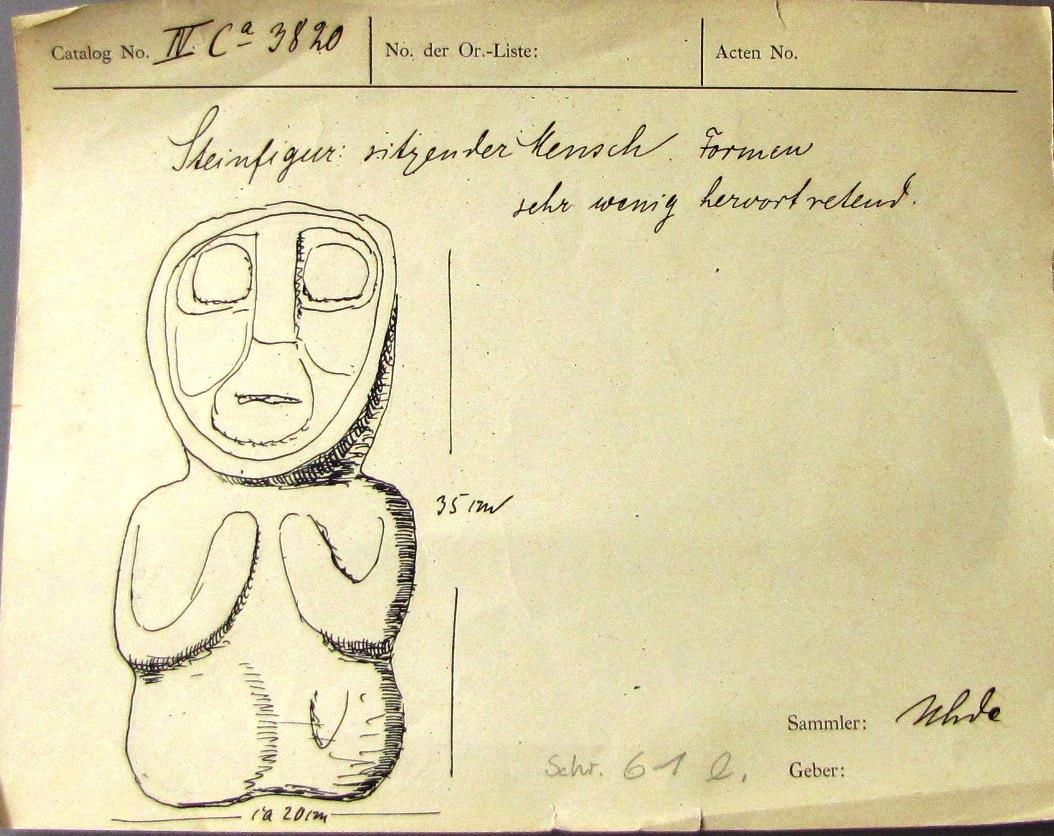 Catalog No. IV Ca 3820 No. der Or.-Liste: Acten No.
Steinfigur: sitzender Mensch. Formen
sehr wenig hervortretend.
35 cm
Sammler: Uhde
Schr. 61 l. Geber:
ca 20 cm